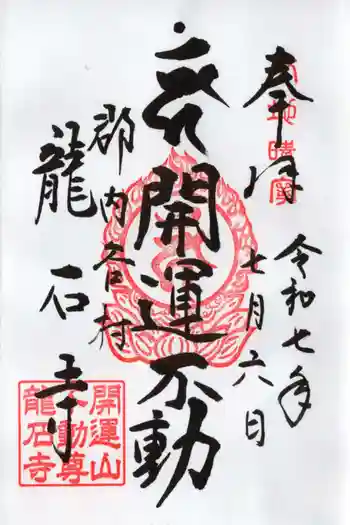 奉拝
令和七年
七月六日
開運不動
郡内
龍石寺
開運山
不動尊
龍石寺